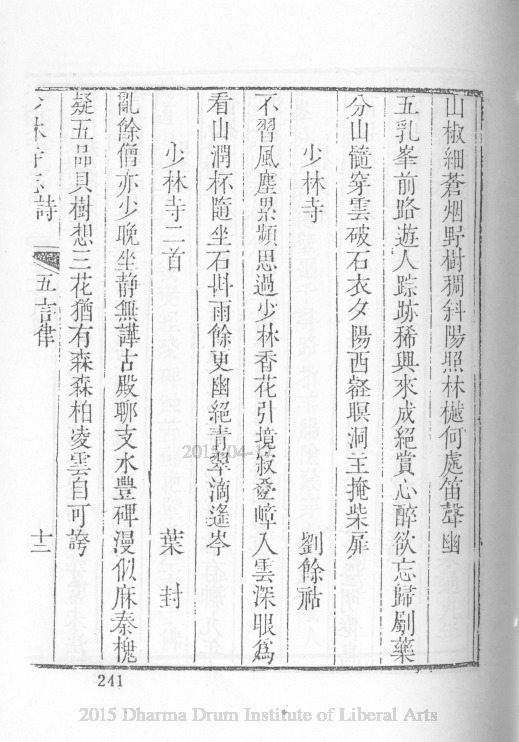 山椒細蒼烟野樹稠斜陽照林樾何處笛聲幽
五乳峯前路遊人踪跡稀興來成絕賞心醉欲忘歸劚藥
分山髓穿雲破石衣夕陽西壑暝洞主掩柴扉
少林寺 劉餘祐
不習風塵累頻思過少林香花引境寂疊嶂入雲深眼為
看山濶杯隨坐石斟雨餘更幽絕青翠滴遙岑
少林寺二首 葉封
亂餘僧亦少晚坐静無譁古殿聊支水豐碑漫似麻秦槐
疑五品貝樹想三花猶有森森柏凌雲自可誇
少林寺志詩 五言律 十二
241
2015-04-
2015 Dharma Drum Institute of Liberal Arts